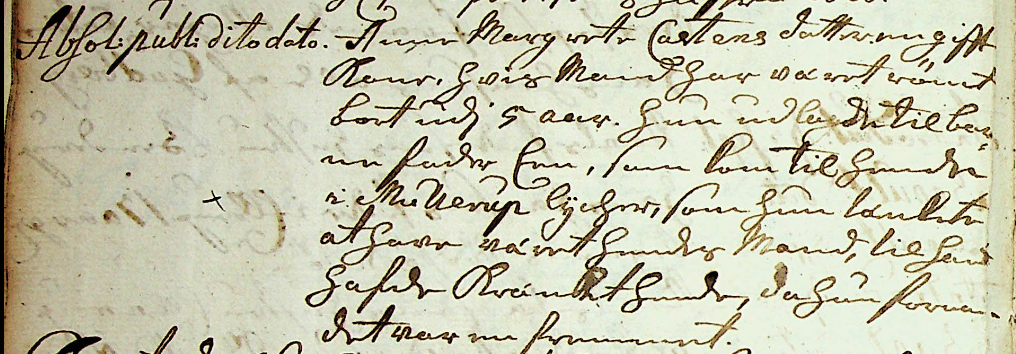 Absol: publ: dito dato. Anne Margrete Castens datter en gift
Kone, hvis Mand har været römt
bort udj 5 aar. Hun udlagde til bar-
ne fader Een, som kom til hende
i Mullerup lycher, som hun tænkte
at have været hendes Mand, til hand
hafde Krænket hende, da hun fornam
det var en fremmet.